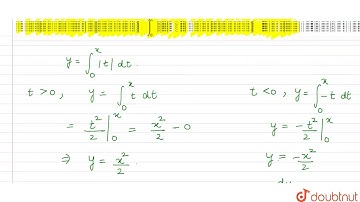 y = ∫₀ˣ |t| dt
t > 0 , y = ∫₀ˣ t dt
= t²/2 |₀ˣ = x²/2 − 0
⇒ y = x²/2 .
t < 0 , y = ∫₀ˣ −t dt
y = −t²/2 |₀ˣ
y = −x²/2
doubtnut